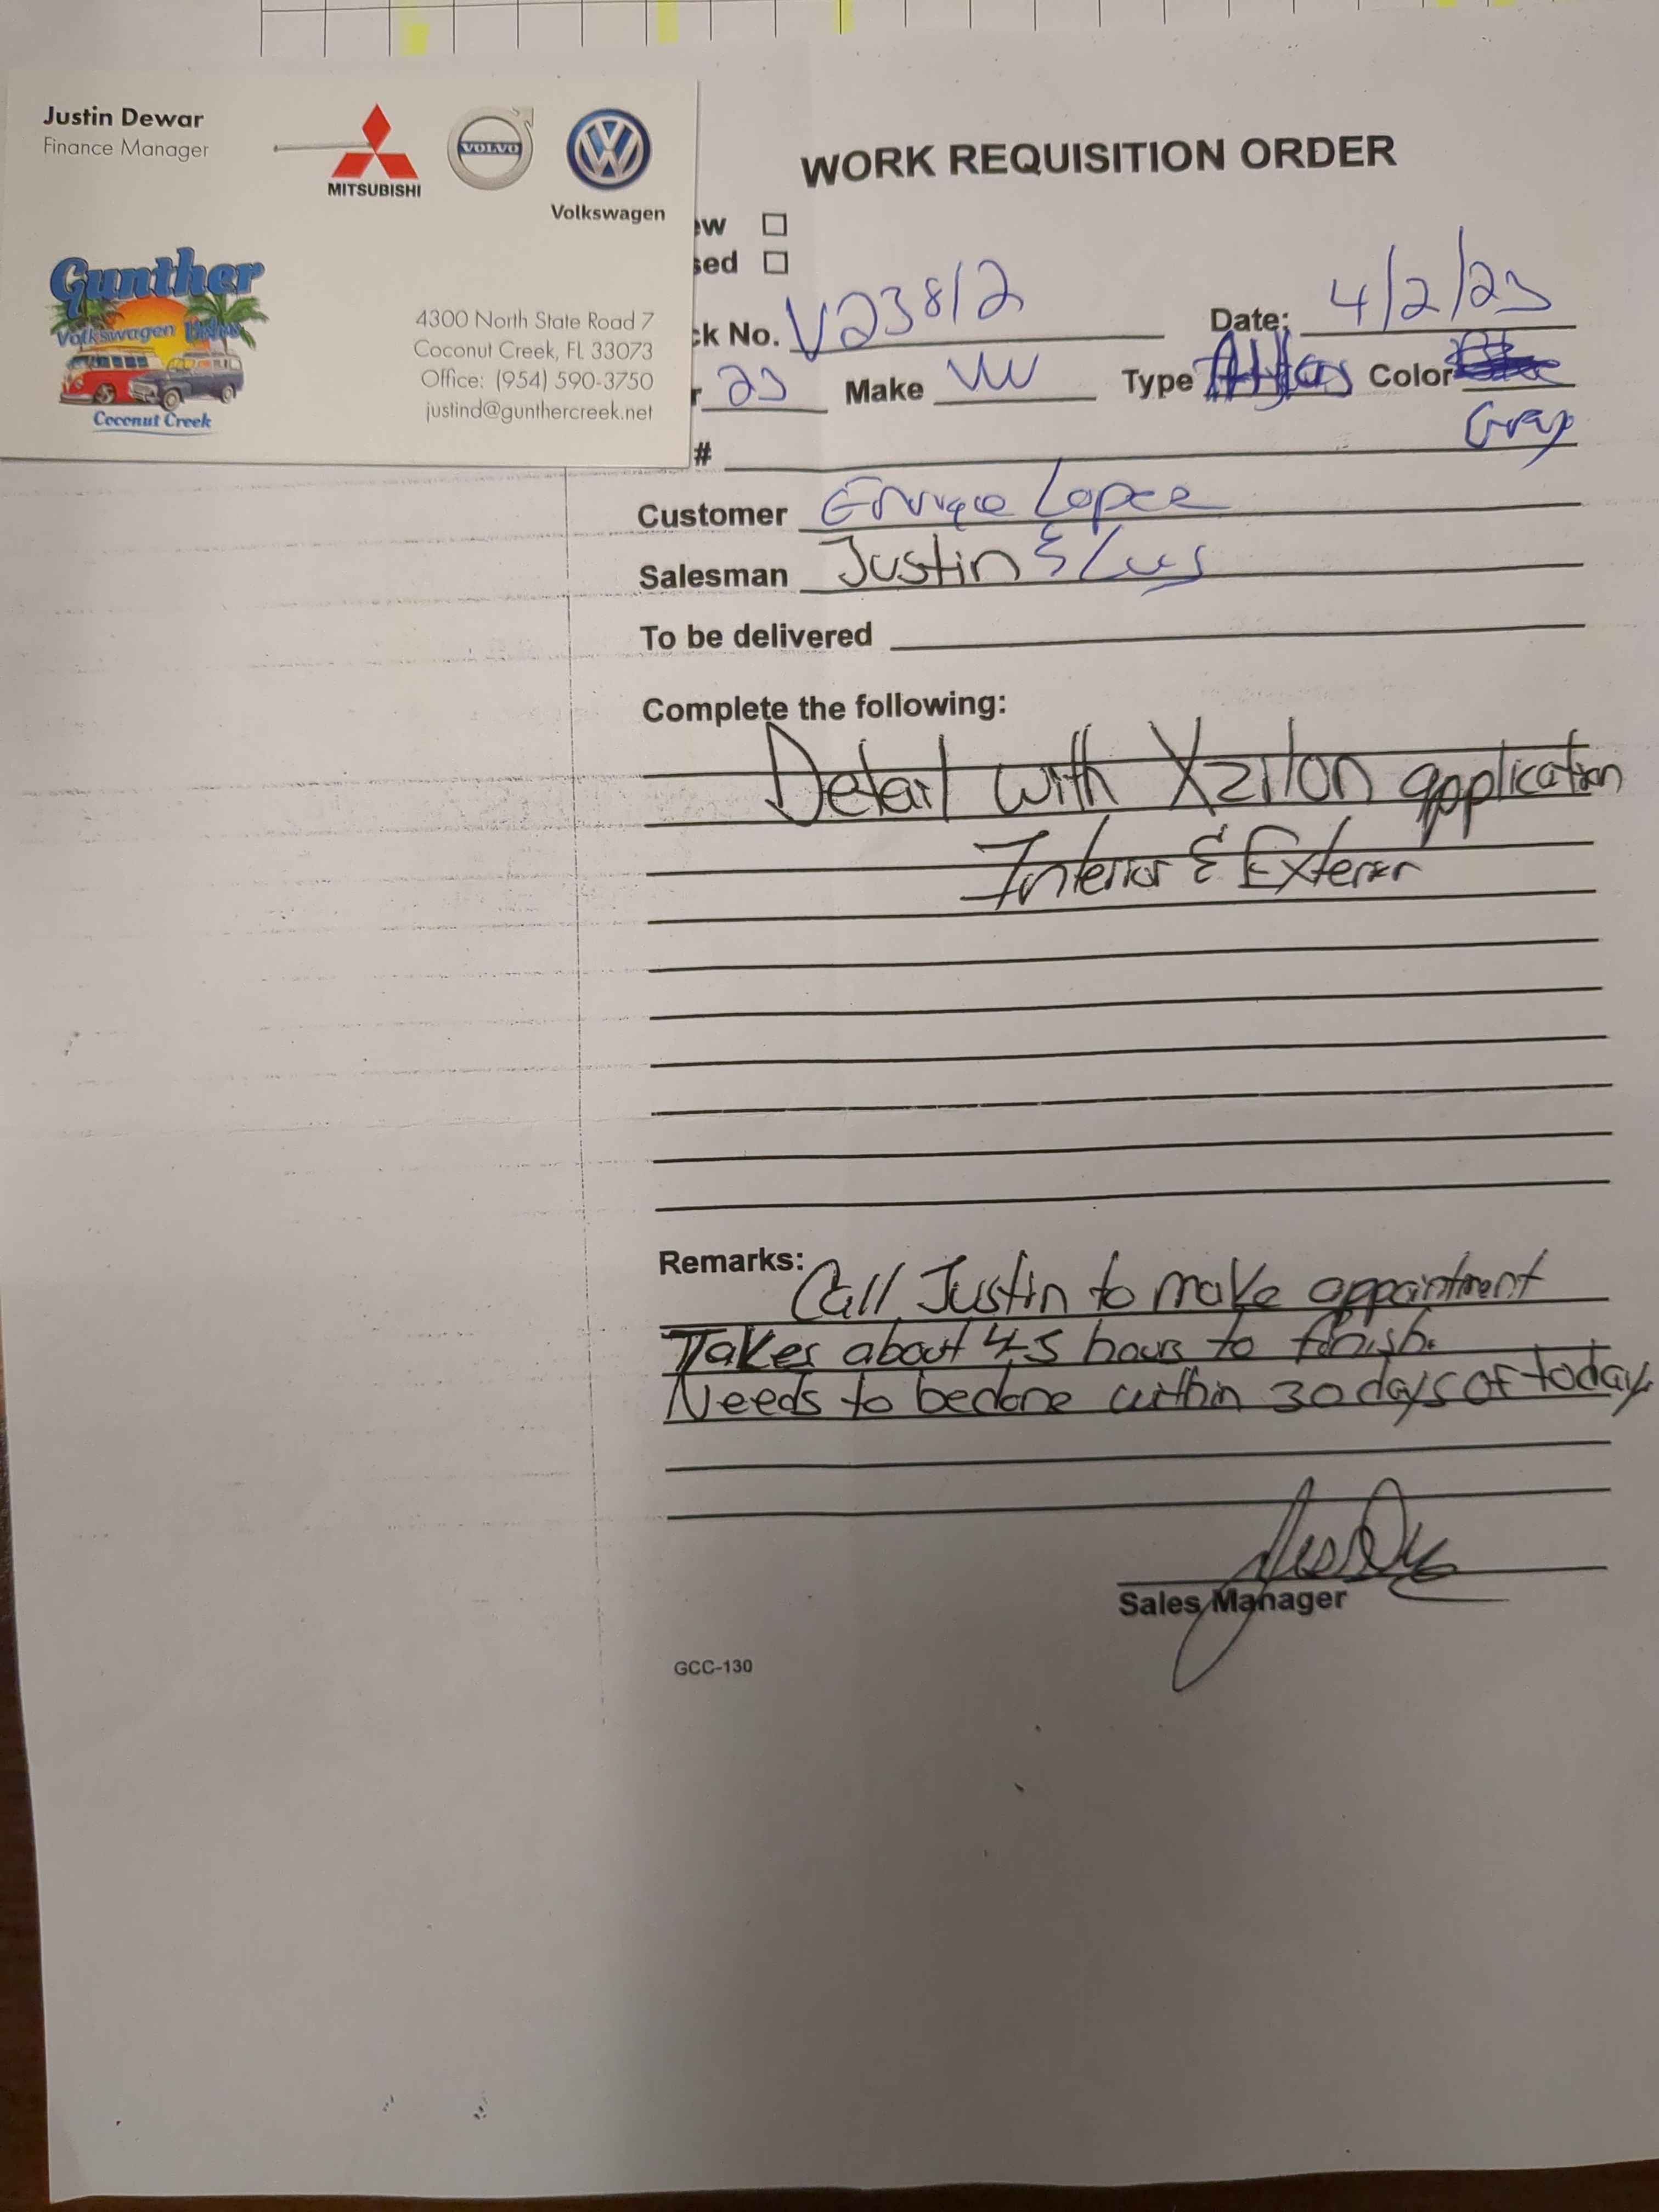 Justin Dewar
Finance Manager
MITSUBISHI
VOLVO
Volkswagen
Gunther
Volkswagen Volvo
Coconut Creek
4300 North State Road 7
Coconut Creek, FL 33073
Office: (954) 590-3750
justind@gunthercreek.net
WORK REQUISITION ORDER
ew
sed
ck No. V23812 Date: 4/2/23
r 23 Make VW Type Atlas Color
Gray
#
Customer Enrique Lopez
Salesman Justin & Luis
To be delivered
Complete the following:
Detail with Xzilon application
Interior & Exterior
Remarks: Call Justin to make appointment
Takes about 4-5 hours to finish.
Needs to be done within 30 days of today.
Sales Manager
GCC-130